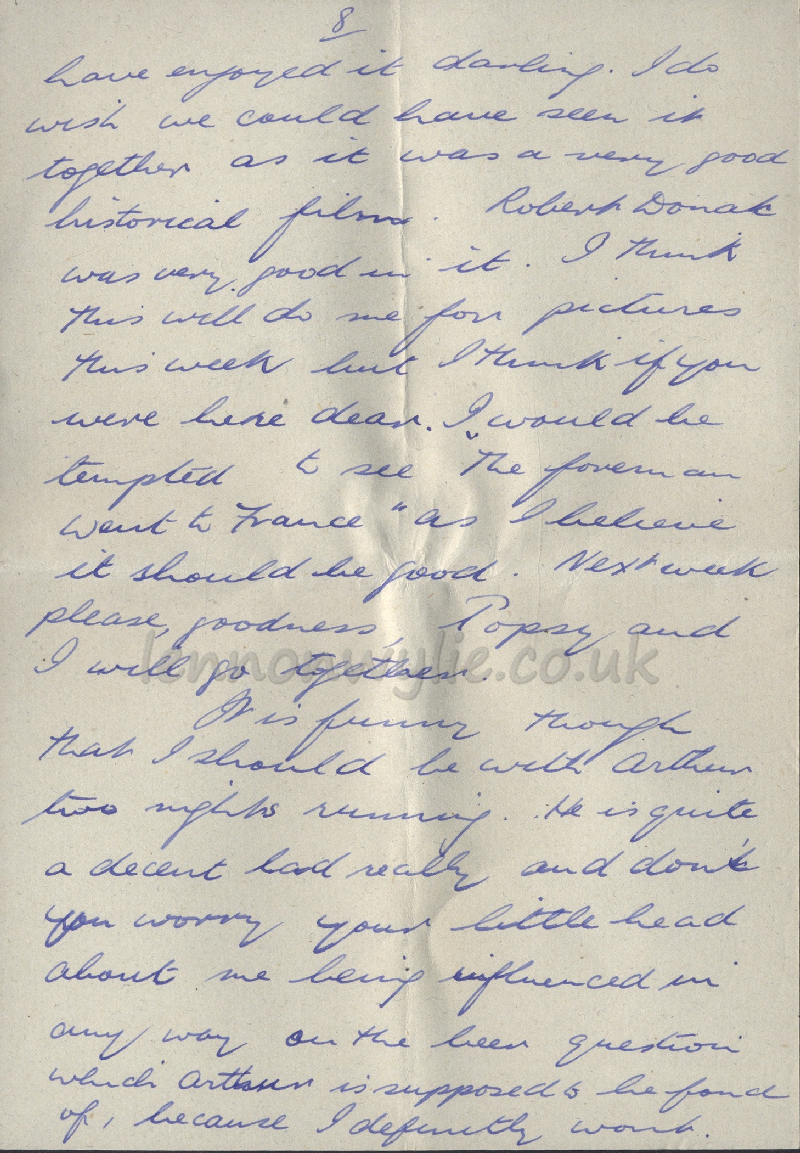 8
have enjoyed it darling. I do
wish we could have seen it
together as it was a very good
historical film. Robert Donat
was very good in it. I think
this will do me for pictures
this week but I think if you
were here dear. I would be
tempted to see "The foreman
went to France" as I believe
it should be good. Next week
please, goodness, Popsy and
I will go together.
lennonwylie.co.uk
It is funny though
that I should be with Arthur
two nights running. He is quite
a decent lad really and don't
you worry your little head
about me being influenced in
any way on the beer question
which Arthur is supposed to be fond
of, because I definitly wont.